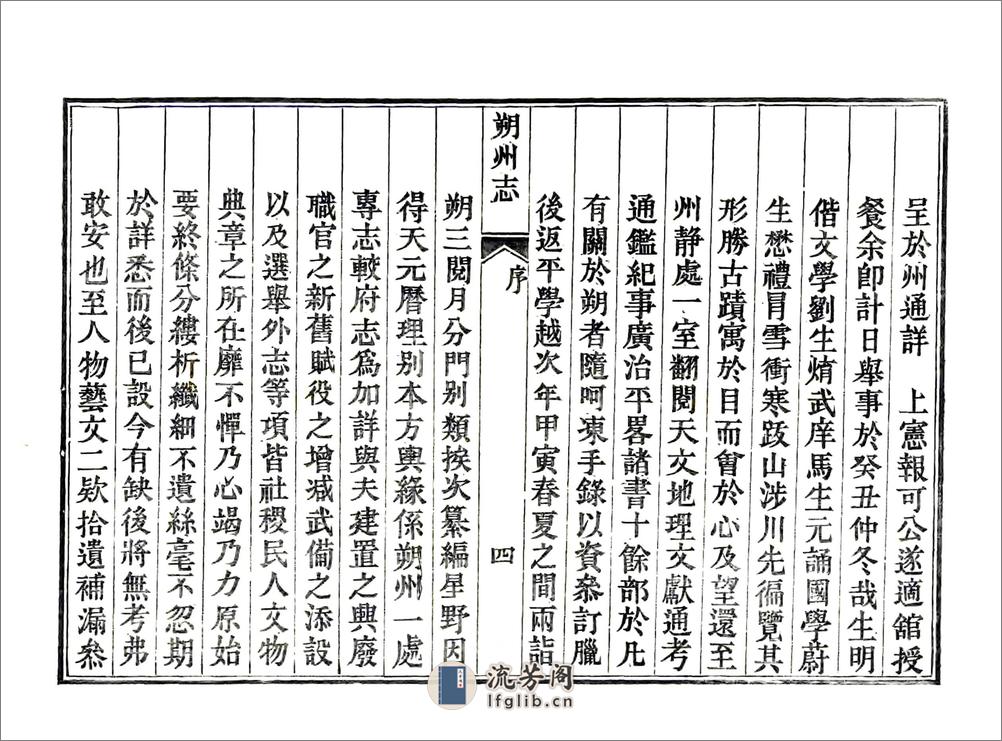 呈於州通詳　上憲報可公遂適舘授
餐余卽計日舉事於癸丑仲冬哉生明
偕文學劉生焴武庠馬生元誦國學蔚
生懋禮冐雪衝寒跋山涉川先徧覽其
形勝古蹟寓於目而會於心及望還至
州静處一室翻閱天文地理文獻通考
通鑑紀事廣治平畧諸書十餘部於凡
有關於朔者隨呵凍手錄以資叅訂臘
後返平學越次年甲寅春夏之間兩詣
朔州志
序
四
朔三閱月分門别類挨次纂編星野因
得天元曆理别本方輿緣係朔州一處
專志較府志爲加詳與夫建置之興廢
職官之新舊賦役之增减武備之添設
以及選舉外志等項皆社稷民人文物
典章之所在靡不憚乃心竭乃力原始
要終條分縷析纖細不遺絲毫不忽期
於詳悉而後已設今有缺後將無考弗
敢安也至人物藝文二欵拾遺補漏叅
流芳阁
lfglib.cn